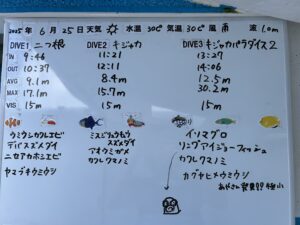 2025年 6月 25日 天気 水温 30℃ 気温 30℃ 風 南 波 1.0m
DIVE1 二つ根 DIVE2 キジャカ DIVE3 キジャカパラダイス2
IN 9:46 11:21 13:27
OUT 10:37 12:11 14:06
AVG 9.1m 8.4m 12.5m
MAX 17.1m 15.7m 30.2m
VIS 15m 15m 15m
ウミウシカクレエビ ミスジリュウキュウスズメダイ イソマグロ
デバスズメダイ アオウミガメ リングアイジョーフィッシュ
ニセアカホシエビ カクレクマノミ カクレクマノミ
ヤマブキウミウシ カグヤヒメウミウシ